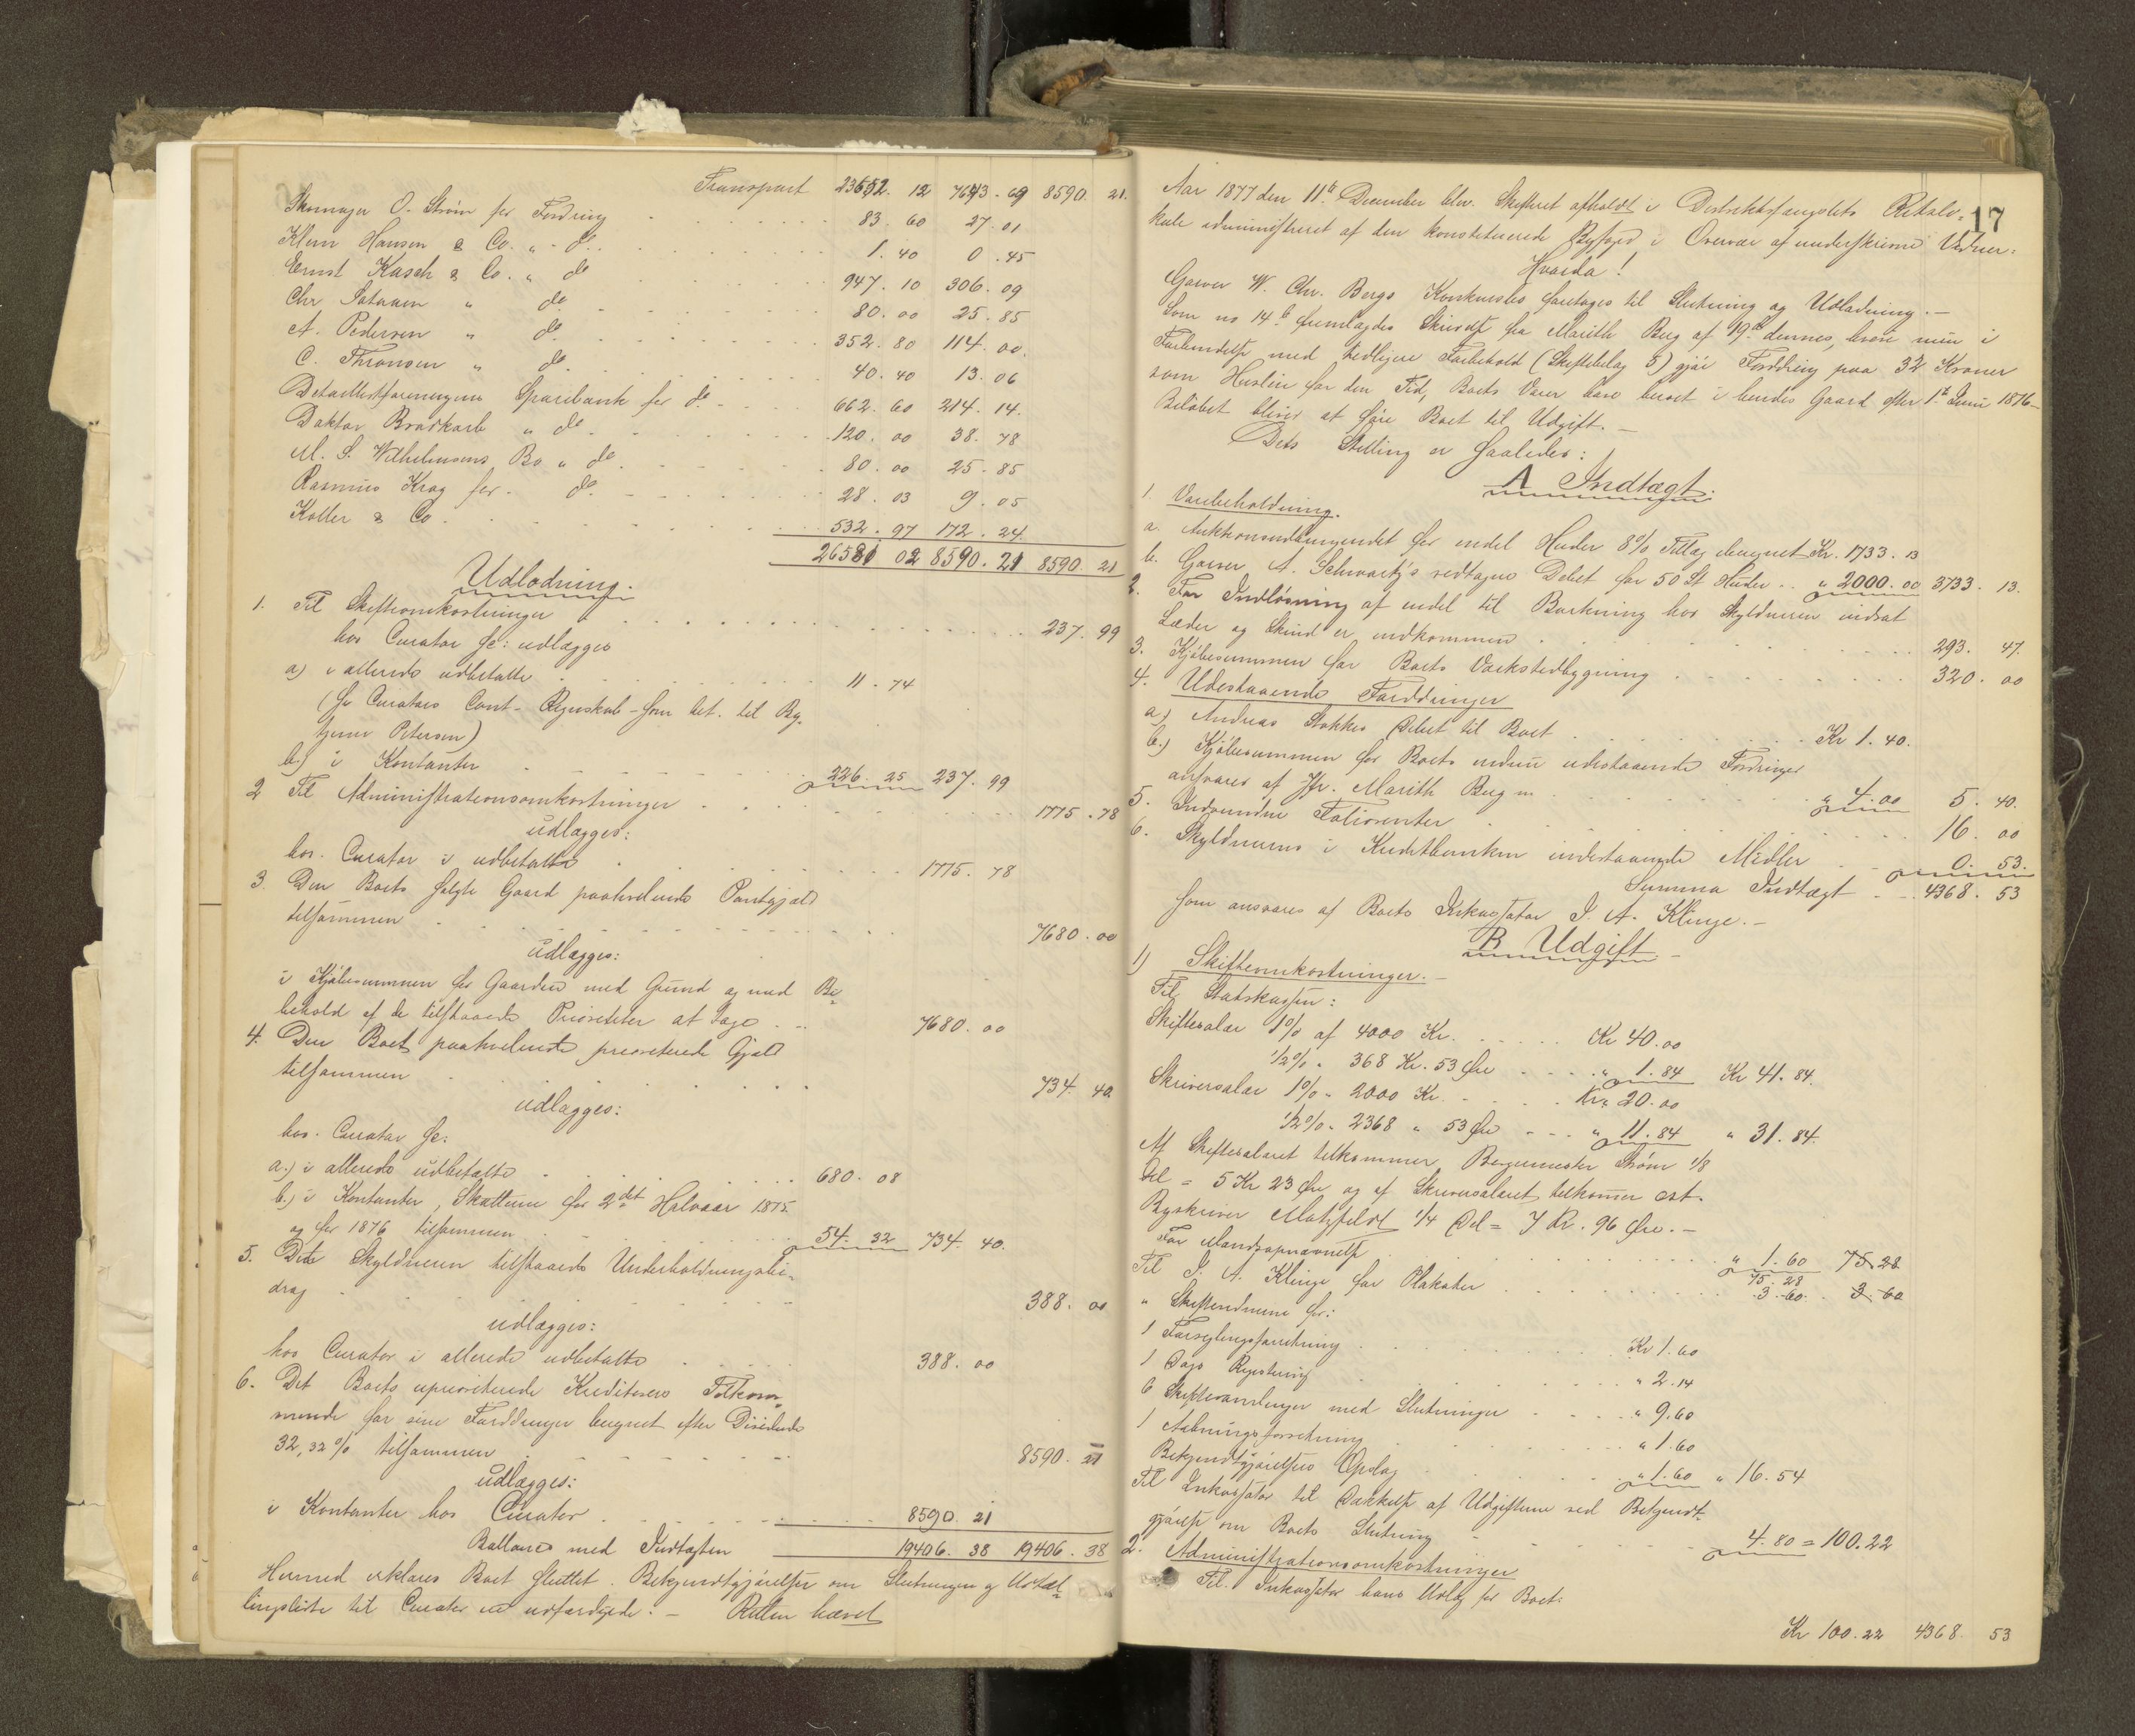 Transport 23652. 12 7643. 69 8590. 21.
Skomager O. Strøm for Fordring 83. 60 27. 01
Klem Hansen & Co. " do. 1. 40 0. 45
Ernst Kasch & Co. " do 947. 10 306. 09
Chr " do. 80. 00 25. 85
A. Pedersen " do. 352. 80 114. 00.
C. Thronsen " do 40. 40 13. 06
Detaillistforeningens Sparebank for do. 662. 60 214. 14.
Doktor " do. 120. 00 38. 78
M. S. Wilhelmsens Bo " do. 80. 00 25. 85
Rasmus Krag for do. 28. 03 9. 05
Koller & Co. 532. 97 172. 24
26581 02 8590. 21 8590. 21
Udlodning.
1. Til Skifteomkostninger 237. 99
hos Curator udlægges
a) i allerede udbetalte 11. 74
( Curators Cont- Regnskab - bet. til By-
tjener Petersen)
b.) i Kontanter 226. 25 237. 99
2 Til Administrationsomkostninger 1775. 78
udlægges:
hos Curator i udbetalte 1775. 78
3. Den Boets solgte Gaard paahvilende Pantegjæld
tilsammen 7680. 00
udlægges:
i Kjøbesummen for Gaarden med Grund og med Be-
hold af de tilstaaede Prioriteter at tage 7680. 00
4. Den Boet paahvilende prioriterede Gjæld
tilsammen 734. 40.
udlægges:
hos Curator
a.) i allerede udbetalte 680. 08
b.) i Kontanter, Skatterne for 2det Halvaar 1875
og for 1876 tilsammen 54. 32 734. 40.
5. Skyldneren tilstaaede Underholdningsbi-
drag 388. 00
udlægges:
hos Curator i allerede udbetalte 388. 00
6. Det Boets uprioriterede Kreditorers Tilkom-
mende for sine Fordringer beregnet efter Dividende
32,32 % tilsammen 8590. 21
udlægges:
i Kontanter hos Curator 8590. 21
Ballance med Indtægten 19406. 38 19406. 38
Hermed erklæres Boet sluttet. Bekjendtgjørelse om Slutningen og Udtæl-
lingsliste til Curator er udfærdigede. - Retten hævet
17
Aar 1877 den 11te December blev Skifteret afholdt i Distriktsfængslets Retslo-
kale administreret af den konstituerede Byfoged i Overvær af underskrevne Vidner.
Hvorda!
Garver W. Chr. Bergs Konkursbo foretages til Slutning og Udlodning. -
Som no 14 b fremlagdes Skrivelse fra Marith Berg af 19de dennes, hvori hun i
Forbindelse med tidligere Forbehold (Skiftebilag 5) gjør Fordring paa 32 Kroner
som Husleie for den Tid, Boets Varer have beroet i hendes Gaard efter 1ste Juni 1876 -
Beløbet bliver at føre Boet til Udgift. -
Dets Stilling er saaledes:
A Indtægt.
1. Varebeholdning.
a. Auktionsudbringendet for endel Huder 8% Tillæg beregnet Kr. 1733. 13
b. Garver A. Schwartz's vedtagne Debet for 50 St Huder " 2000. 00 3733. 13.
2. For Indløsning af endel til Barkning hos Skyldneren indsat
Læder og Skind er indkommen 293. 47.
3. Kjøbesummen for Boets Værkstedbygning 320. 00
4. Udestaaende Fordringer
a) Andreas Stokkes Debet til Boet Kr 1. 40.
b.) Kjøbesummen for Boets endnu udestaaende Fordringer
ansvares af Jfr. Marith Berg m 4. 00 5. 40.
5. Indvundne Foliorenter 16. 00
6. Skyldnerens i Kreditbanken indestaaende Midler 0. 53.
Summa Indtægt 4368. 53
som ansvares af Boets Inkassator J. A. Klinge. -
B Udgift -
1) Skifteomkostninger. -
Til Statskassen:
Skiftesalær 1% af 4000 Kr. Kr 40.00
1/2% " 368 Kr. 53 Øre " 1. 84 Kr 41. 84.
Skriversalær 1% " 2000 Kr. Kr " 20. 00
1/2% " 2368 " 53 Øre " 11. 84 " 31. 84.
Af Skiftesalæret tilkommer Borgermester Strøm 1/8
Del = 5 Kr 23 Øre og af Skriversalæret tilkommer cst.
Byskriver Matzfeldt 1/4 Del = 7 Kr. 96 Øre. -
For Mandsopnævnelse " 1. 60 75 28
75. 28
Til J. A. Klinge for Plakater 3. 60. 3. 60
" Skiftevidnerne for:
1 Forseglingsforretning Kr 1. 60
1 Dags Registrering " 2. 14
6 Skiftesamlinger med Slutninger " 9. 60
1 Aabningsforretning " 1. 60
Bekjendtgjørelsers Opslag " 1. 60 " 16. 54
Til Inkassator til Dækkelse af Udgifterne ved Bekjendt-
gjørelse om Boets Slutning 4. 80 = 100. 22
2. Administrationsomkostninger
Til Inkassator hans Udlæg for Boet:
Kr 100. 22 4368. 53